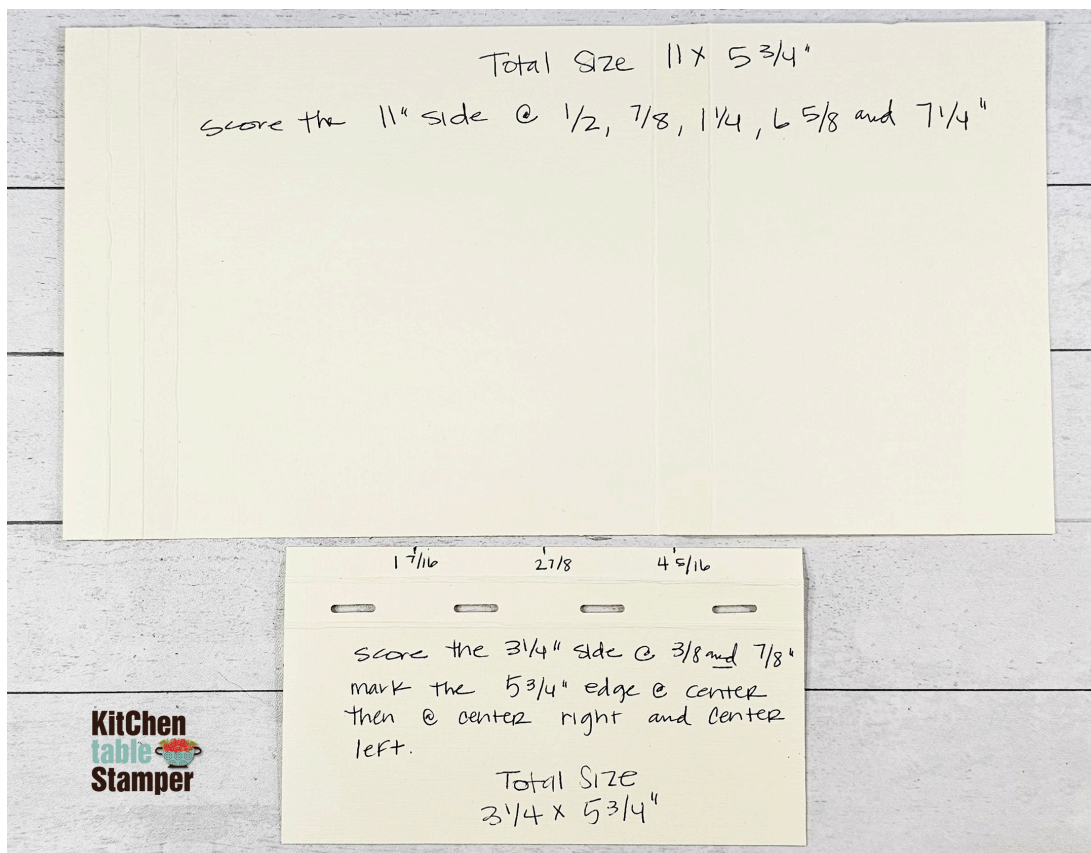 Total Size 11 x 5 3/4"
score the 11" side @ 1/2, 7/8, 1 1/4, 6 5/8 and 7 1/4"
1 7/16 2 7/8 4 5/16
score the 3 1/4" side @ 3/8 and 7/8"
mark the 5 3/4" edge @ center
then @ center right and center
left.
Total Size
3 1/4 x 5 3/4"
KitChen
table
Stamper